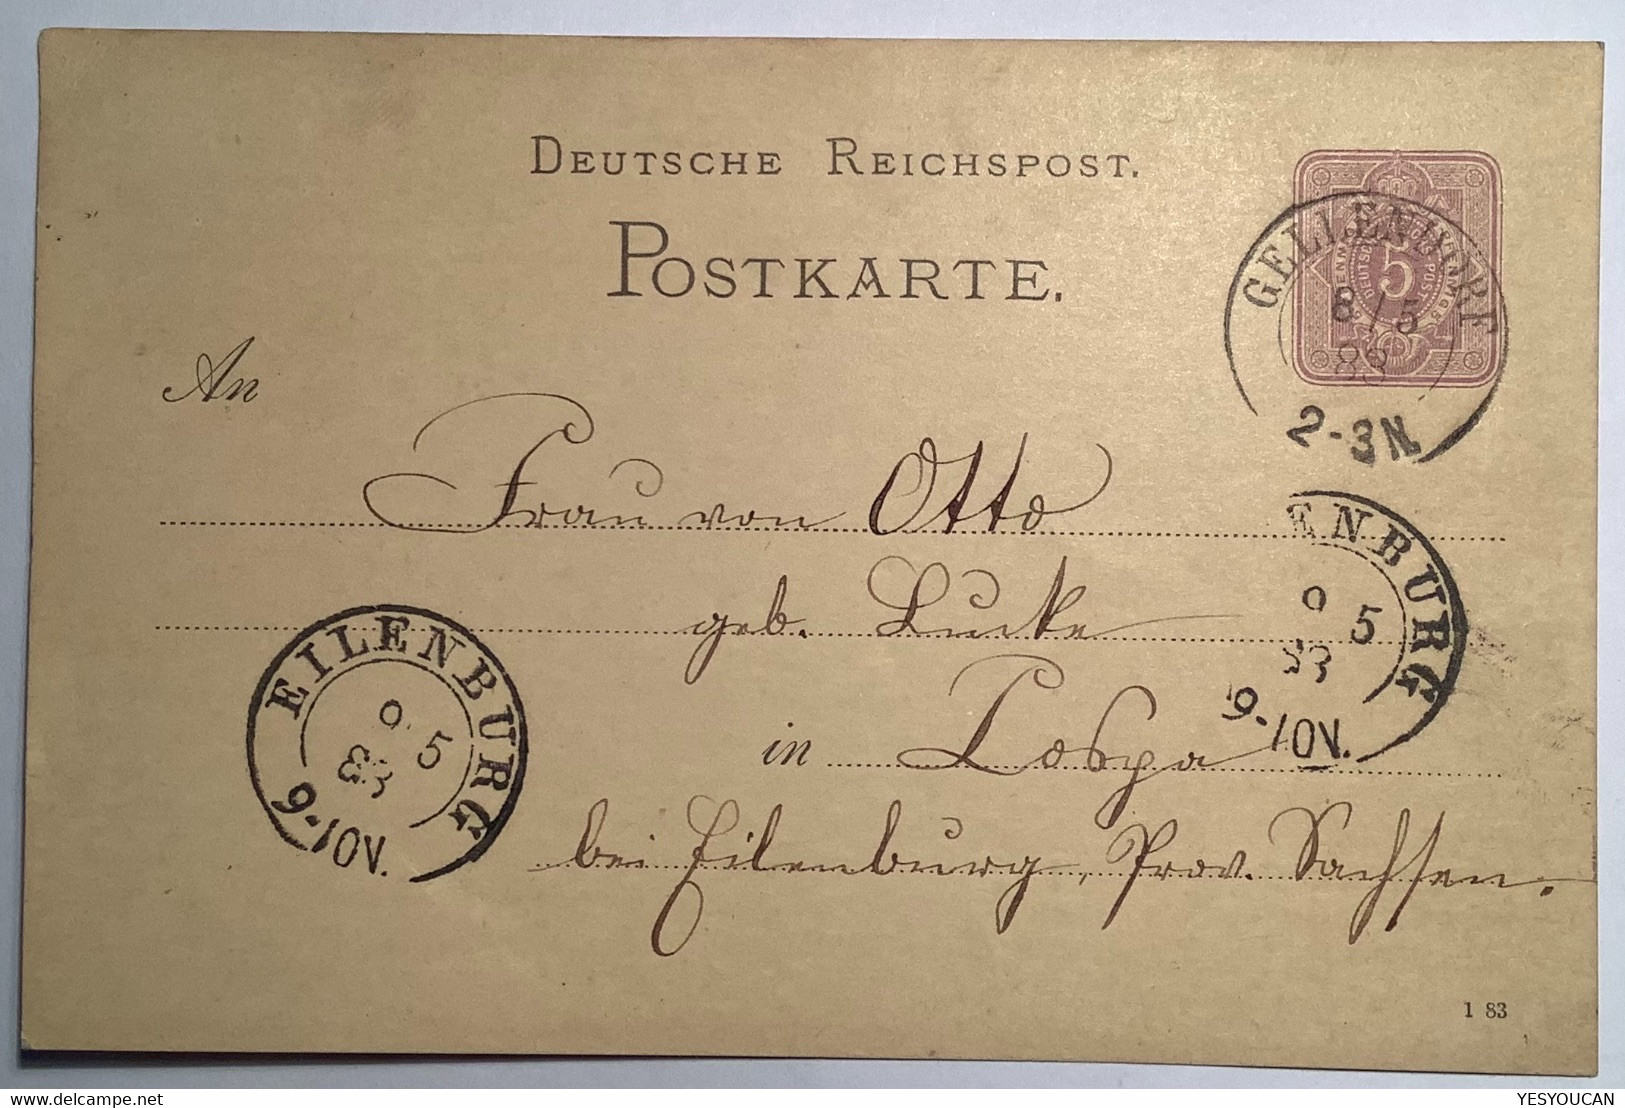 DEUTSCHE REICHSPOST.
POSTKARTE.
GELLENDORF
8/5
83
2-3N.
5
An
Frau von Otto
geb. Lucke
in Lospa
bei Eilenburg, Prov. Sachsen.
ENBURG
9 5
83
9-10V.
EILENBURG
9 5
83
9-10V.
1 83
YESYOUCAN